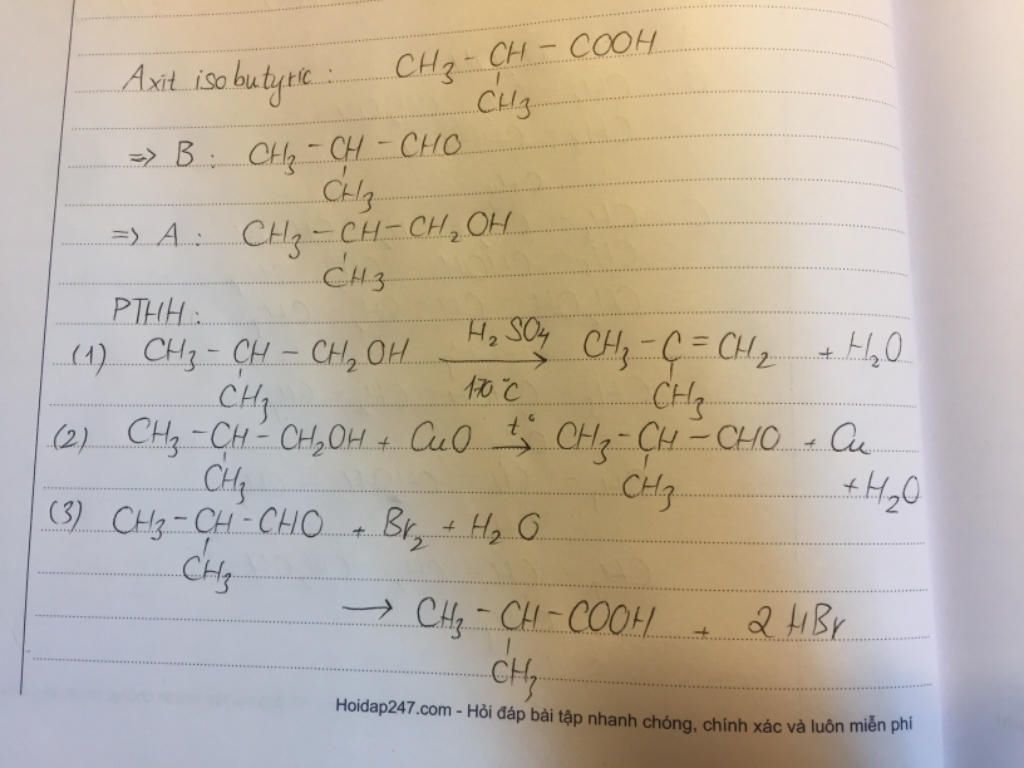 Axit isobutyric : CH3 - CH - COOH
CH3
=> B : CH3 - CH - CHO
CH3
=> A : CH3 - CH - CH2OH
CH3
PTHH :
(1) CH3 - CH - CH2OH H2SO4 170°C → CH3 - C = CH2 + H2O
CH3 CH3
(2) CH3 - CH - CH2OH + CuO t° → CH3 - CH - CHO + Cu
CH3 CH3 + H2O
(3) CH3 - CH - CHO + Br2 + H2O
CH3
→ CH3 - CH - COOH + 2HBr
CH3
Hoidap247.com - Hỏi đáp bài tập nhanh chóng, chính xác và luôn miễn phí